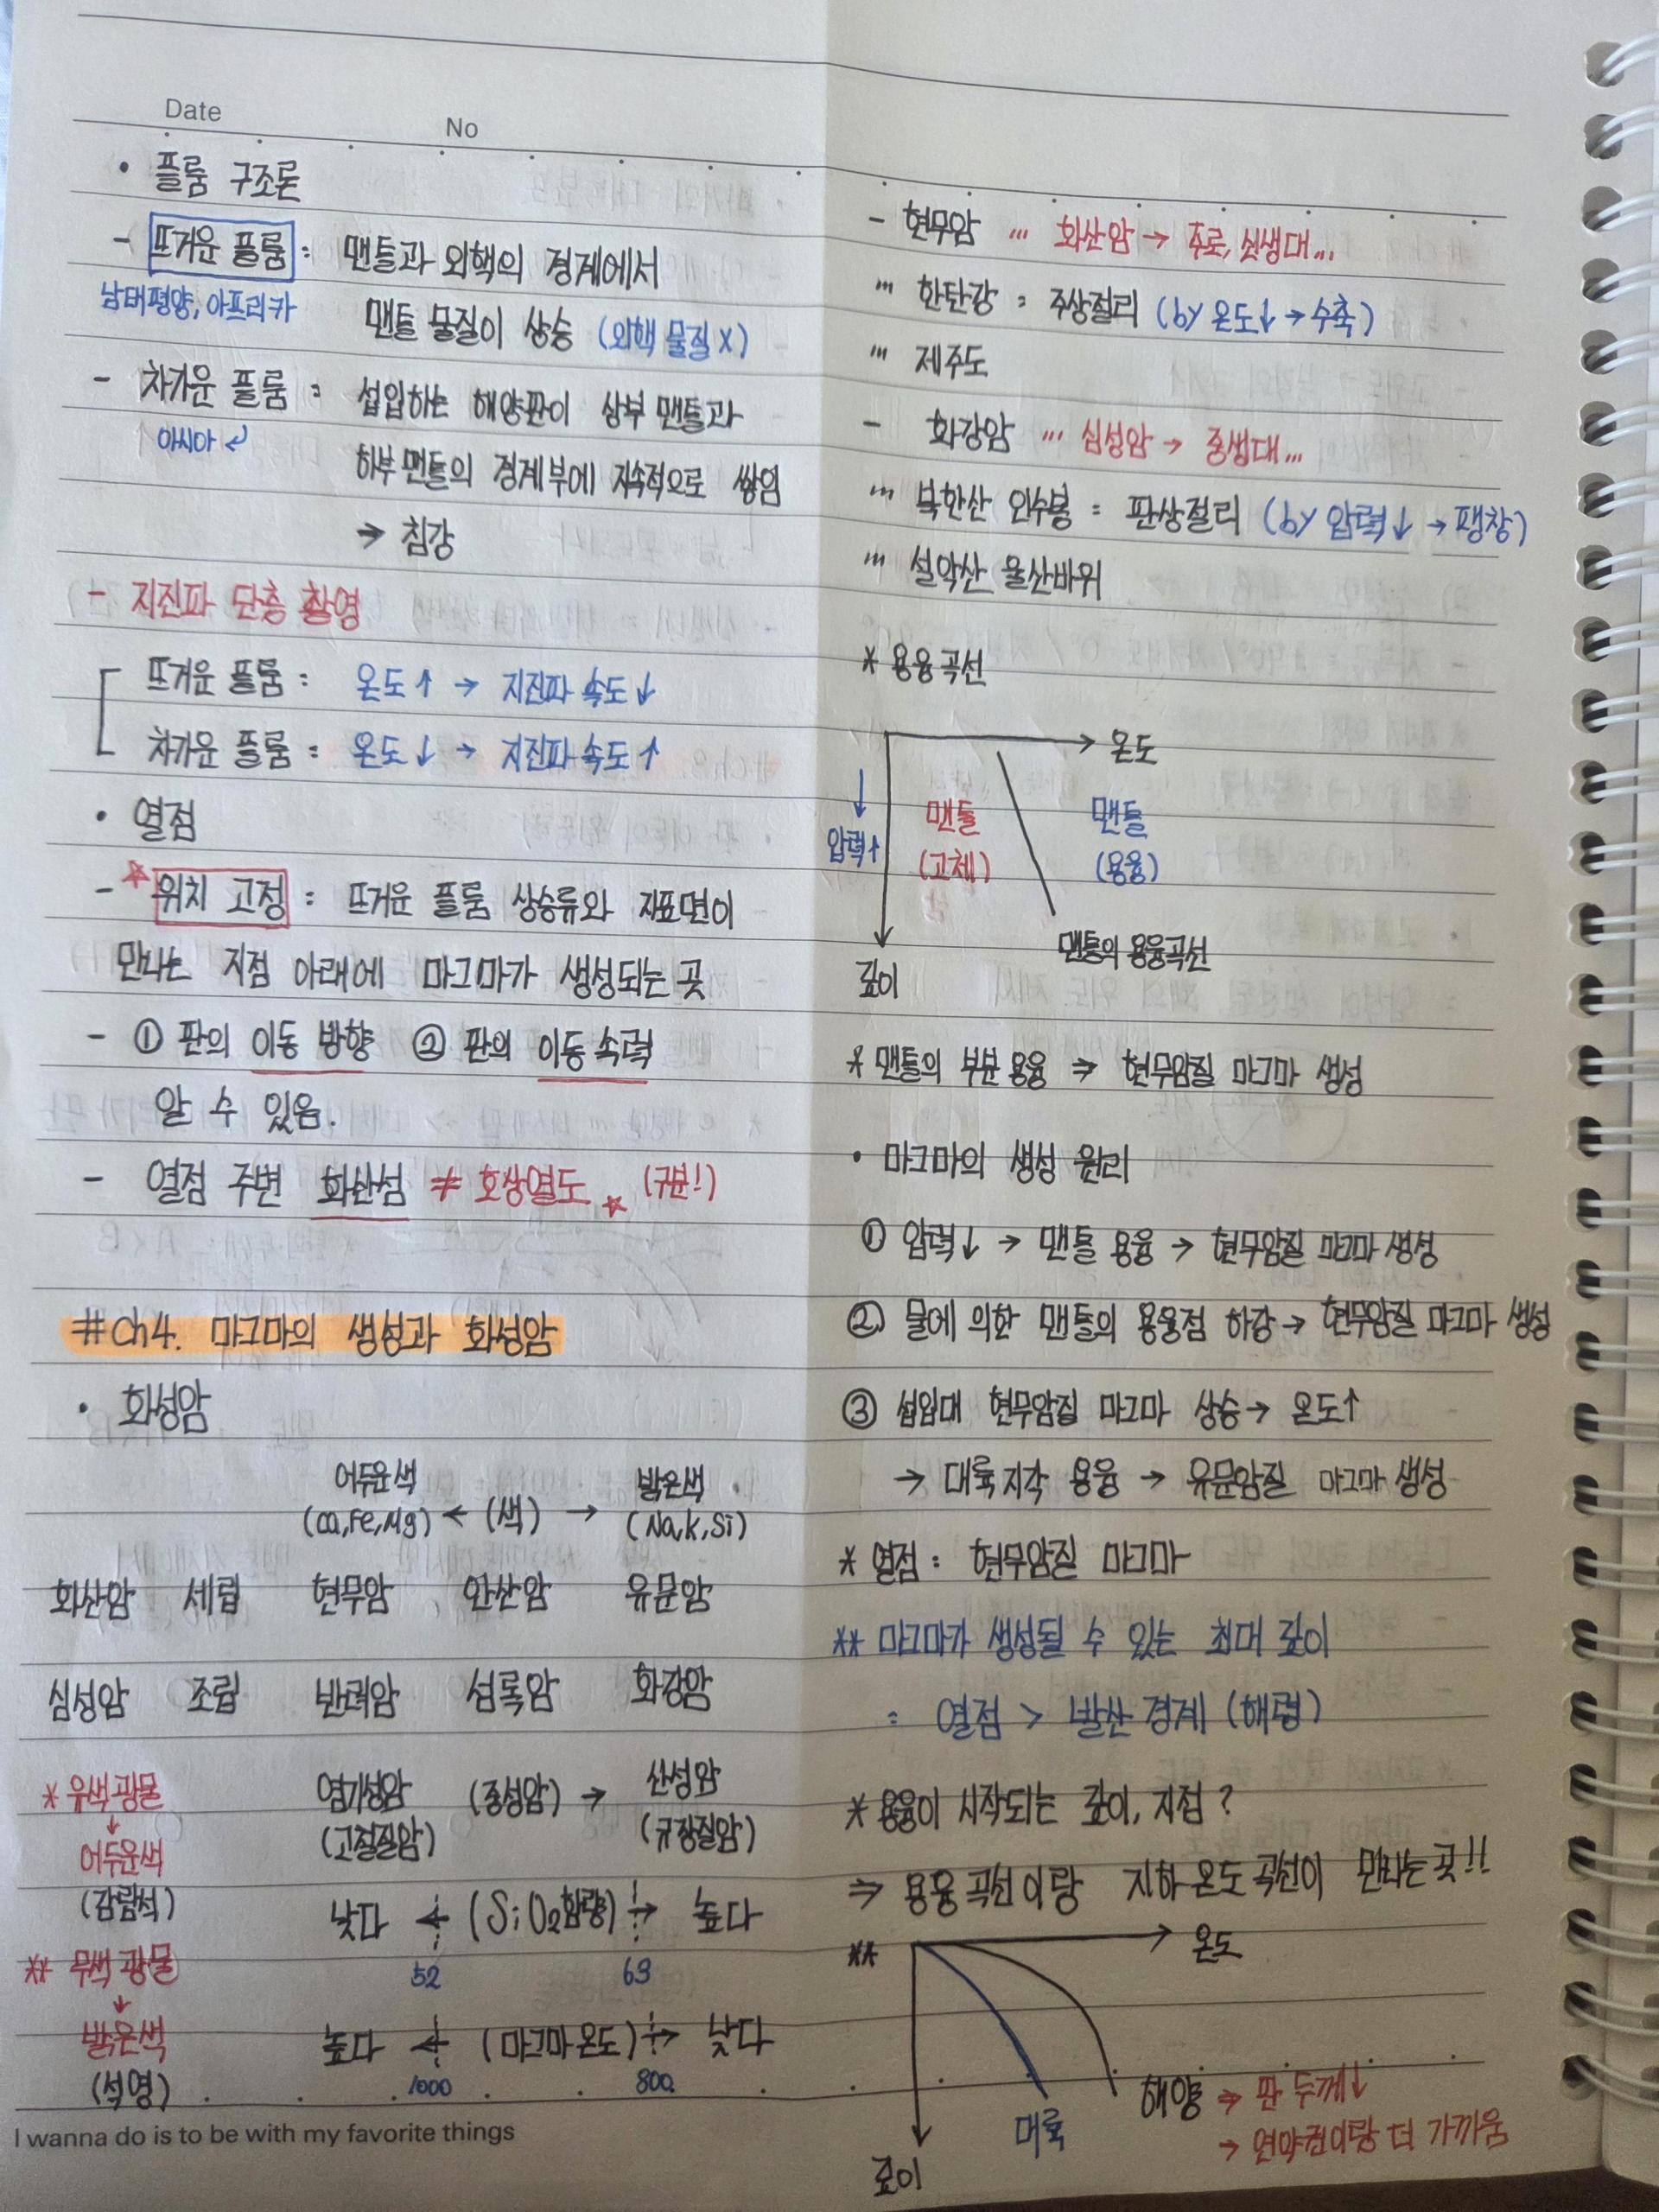 Date
No
• 플룸 구조론
- 뜨거운 플룸 : 맨틀과 외핵의 경계에서
남태평양, 아프리카
맨틀 물질이 상승 (외핵 물질 X)
- 차가운 플룸 : 섭입하는 해양판이 상부 맨틀과
아시아 ↲
하부 맨틀의 경계부에 지속적으로 쌓임
→ 침강
- 지진파 단층 촬영
뜨거운 플룸 : 온도↑ → 지진파 속도↓
차가운 플룸 : 온도↓ → 지진파 속도↑
• 열점
- ☆ 위치 고정 : 뜨거운 플룸 상승류와 지표면이
만나는 지점 아래에 마그마가 생성되는 곳
- ① 판의 이동 방향 ② 판의 이동 속력
알 수 있음.
- 열점 주변 화산섬 ≠ 호상열도 ☆ (구분!)
#Ch4. 마그마의 생성과 화성암
• 화성암
어두운색 밝은색
(Ca, Fe, Mg) ← (색) → (Na, K, Si)
화산암 세립 현무암 안산암 유문암
심성암 조립 반려암 섬록암 화강암
* 유색 광물
↓
어두운색
(감람석)
** 무색 광물
↓
밝은색
(석영)
염기성암 (중성암) → 산성암
(고철질암) (규장질암)
낮다 ← (SiO2함량) → 높다
52 63
높다 ← (마그마 온도) → 낮다
1000 800
I wanna do is to be with my favorite things
- 현무암 ... 화산암 → 주로, 신생대...
''' 한탄강 : 주상절리 (by 온도↓ → 수축)
''' 제주도
- 화강암 ... 심성암 → 중생대...
''' 북한산 인수봉 : 판상절리 (by 압력↓ → 팽창)
''' 설악산 울산바위
* 용융곡선
온도
↓
압력↑
맨틀
(고체)
맨틀
(용융)
맨틀의 용융곡선
깊이
* 맨틀의 부분 용융 ⇒ 현무암질 마그마 생성
• 마그마의 생성 원리
① 압력↓ → 맨틀 용융 → 현무암질 마그마 생성
② 물에 의한 맨틀의 용융점 하강 → 현무암질 마그마 생성
③ 섭입대 현무암질 마그마 상승 → 온도↑
→ 대륙지각 용융 → 유문암질 마그마 생성
* 열점 : 현무암질 마그마
** 마그마가 생성될 수 있는 최대 깊이
: 열점 > 발산 경계 (해령)
* 용융이 시작되는 깊이, 지점 ?
⇒ 용융 곡선이랑 지하 온도 곡선이 만나는 곳!!
**
온도
대륙
해양 → 판 두께↓
→ 연약권이랑 더 가까움
깊이